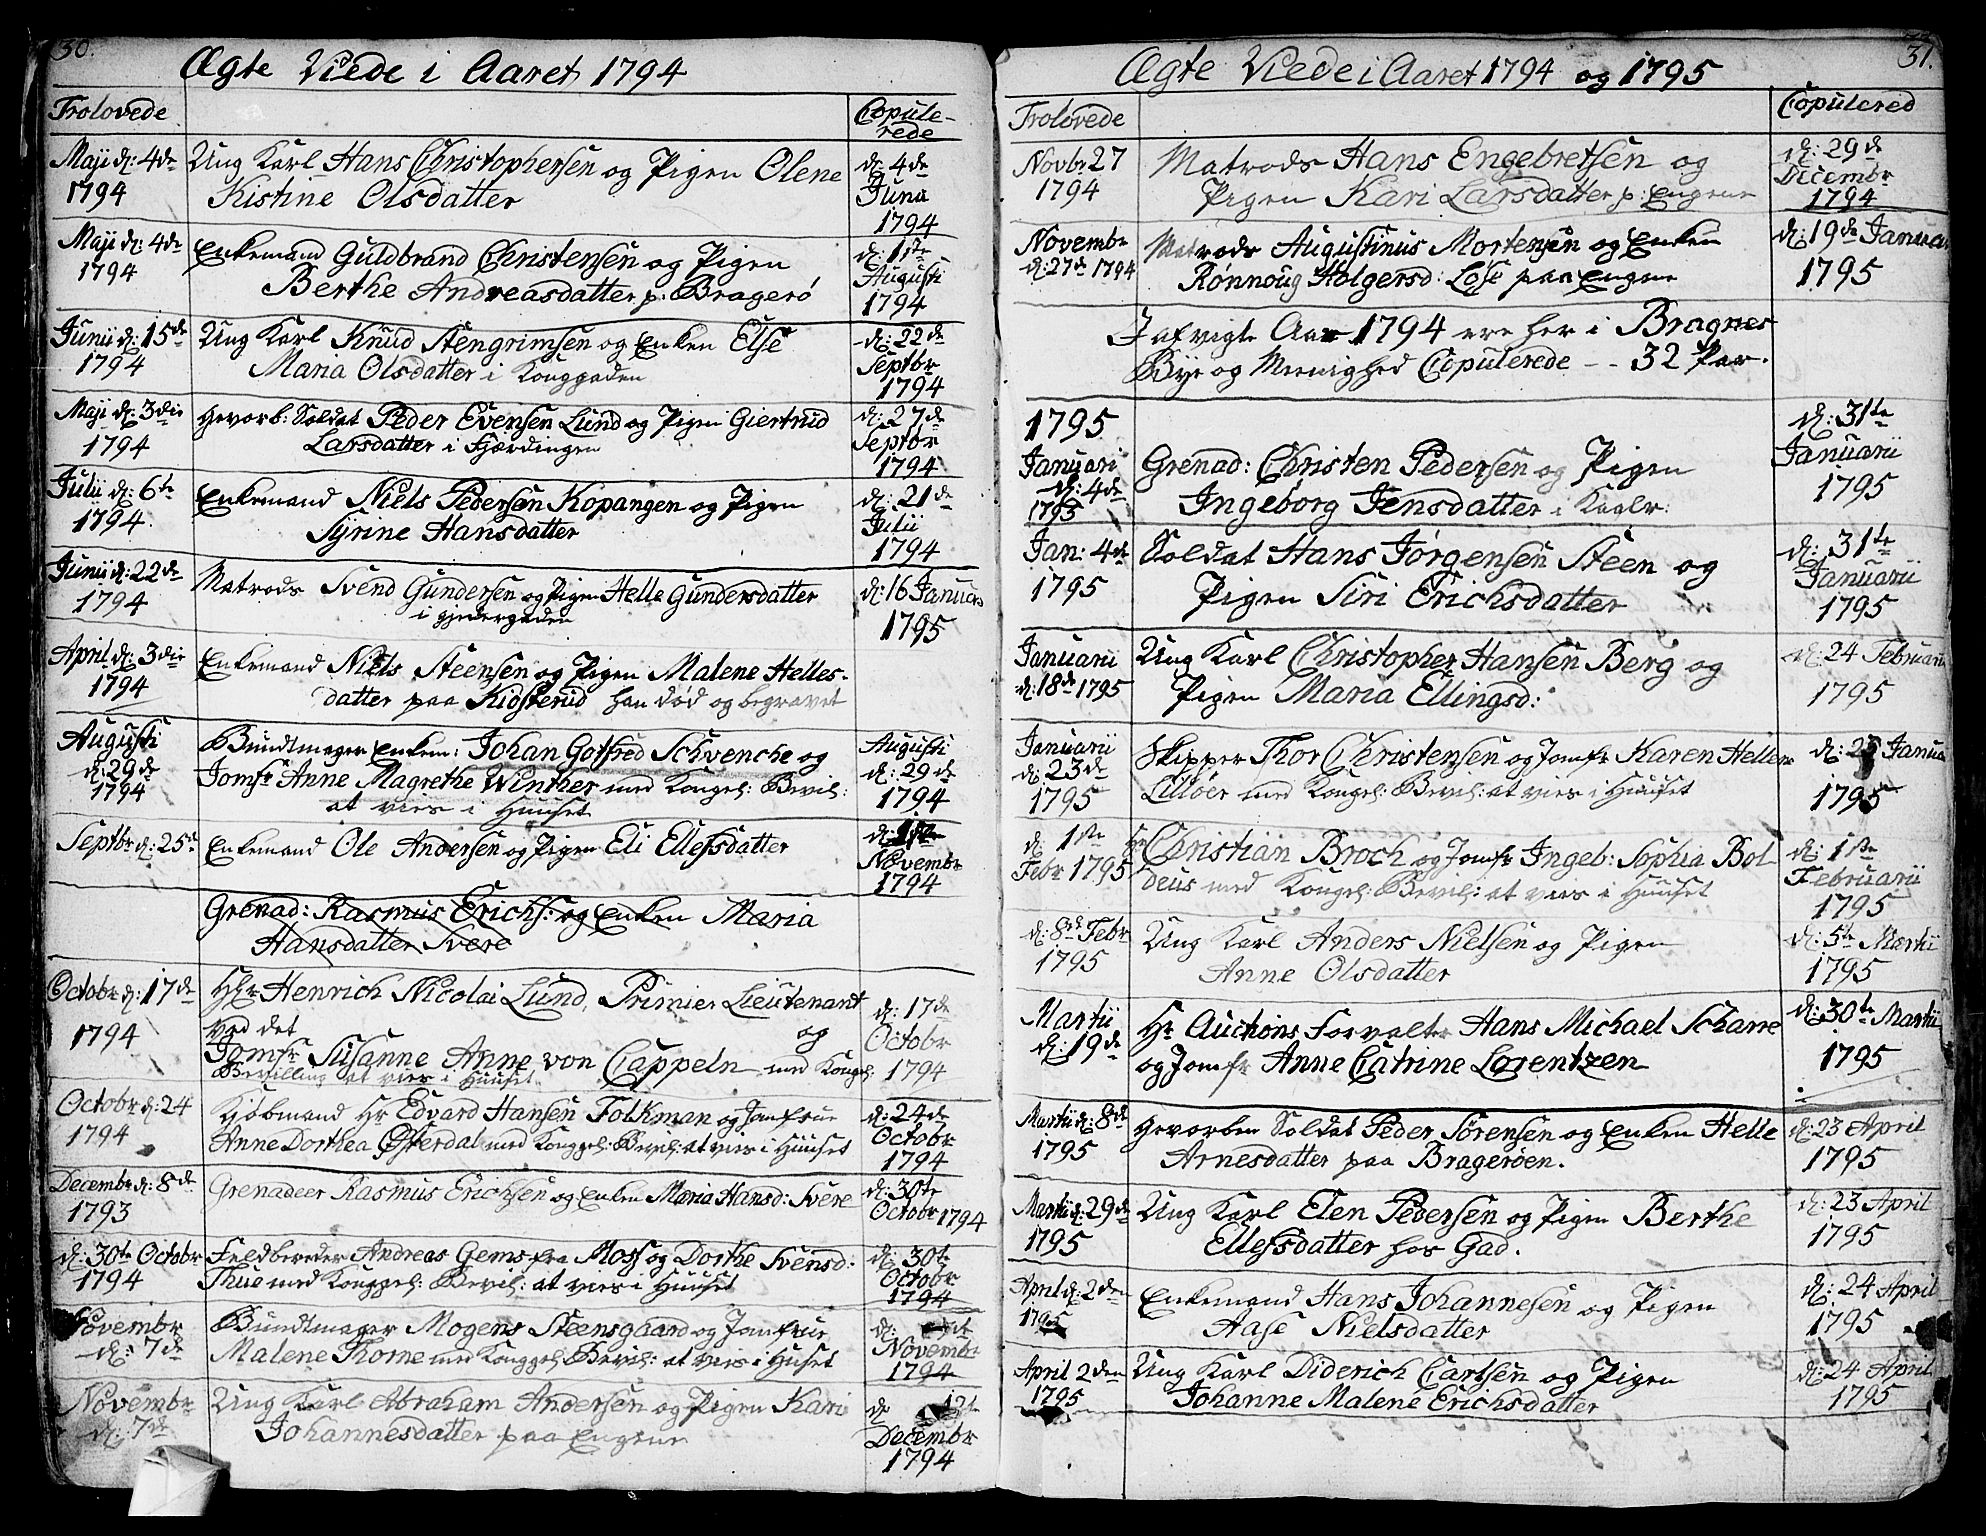 30.
Ægte Viede i Aaret 1794
Trolovede
Copule-
rede
Maji d: 4de
1794
Ung Karl Hans Christophersen og Pigen Olene
Kistine Olsdatter
d: 4de
Juna
1794
Maji d: 4de
1794
Enkemand Guldbrand Christensen og Pigen
Berthe Andreasdatter p: Bragerö
d: 1ste
Augusti
1794
Junii d: 15de
1794
Ung Karl Knud Stengrimsen og Enken Else
Maria Olsdatter i Konggaden
d: 22de
Septbr
1794
Maji d: 3die
1794
Hevorb: Soldat Peder Evensen Lund og Pigen Giertrud
Larsdatter i Fjærdingen
d: 27de
Septbr
1794
Julii d: 6te
1794.
Enkemand Niels Pedersen Kopangen og Pigen
Syrine Hansdatter
d: 21de
Julii
1794
Junii d: 22de
1794
Matrods Svend Gundersen og Pigen Helle Gundersdatter
i gjedergaden
d: 16 Januari
1795
April d: 3die
1794
Enkemand Niels Steensen og Pigen Malene Helles-
datter paa Kiøsterud han død og begravet
Augusti
d: 29de
1794
Bundtmager Enkem: Johan Gotfred Schvenche og
Jomfr Anne Magrethe Winther med Kongel: Bevil:
at vies i Huuset
Augusti
d: 29de
1794
Septbr d: 25de
Enkemand Ole Andersen og Pigen Eli Ellefsdatter
d: 1ste
Novembr
1794
Grenad: Rasmus Erichs: og Enken Maria
Hansdatter Svere
Octobr d: 17de
1794
Hr Henrich Nicolai Lund, Primier Lieutenant
ved det og
Jomfr Susanne Anne von Cappeln med Kongel:
Bevilling at vies i Huuset.
d: 17de
Octobr
1794
Octobr d: 24
1794
Kjøbmand Hr Edvard Hansen Folkman og Jomfrue
Anne Dorthea Østerdal med Kongel: Bevil: at vies i Huuset
d: 24de
Octobr
1794
Decembr d: 8de
1793
Grenadeer Rasmus Erichsen og Enken Maria Hansd: Svere
d: 30te
Octobr 1794
d: 30te Octobr
1794
Feldbereder Andreas Gems fra Moss og Dorthe Svensd:
Thue med Konggel: Bevil: at vies i Huuset
d: 30te
Octobr
1794
Novembr
d: 7de
Bundtmager Mogens Steensgaard og Jomfrue
Malene Thorne med Konggel: Bevil: at vies i Huset
d:
Novembr
1794
Novembr
d: 7de
Ung Karl Abraham Andersen og Pigen Kari
Johannesdatter paa Engene
d 12te
Decembr
1794
31.
Ægte Viede i Aaret 1794 og 1795
Trolovede
Copulered
Novbr 27
1794
Matrods Hans Engebretsen og
Pigen Kari Larsdatter p: Engene
d: 29de
Decembr
1794
Novembr
d: 27de 1794
Matrods Augustinus Mortensen og Enken
Rønnoug Holgersd: Løse paa Engene
d: 19de Januari
1795
I afvigte Aar 1794 ere her i Bragnes
Bye og Meenighed Copulerede -- 32 Par.
1795
Januari
d: 4de
1795
Grenad: Christen Pedersen og Pigen
Ingeborg Jensdatter i Kaglr:
d: 31te
Januarii
1795
Jan: 4de
1795
Soldat Hans Jörgensen Steen og
Pigen Siri Erichsdatter
d: 31te
Januarii
1795
Januarii
d: 18de 1795
Ung Karl Christopher Hansen Berg og
Pigen Maria Ellingsd:
d: 24 Februarii
1795
Januarii
d: 23de
1795
Skipper Thor Christensen og Jomfr Karen Hellene
Lilløer med Kongel: Bevil: at vies i Huuset
d: 23 Janua
1795
d: 1ste
Febr 1795
Hr Christian Broch og Jomfr Ingeb: Sophia Bol-
deus med Kongel: Bevil: at vies i Huuset
d: 1ste
Februarii
1795
d: 8de Febr
1795
Ung Karl Anders Nielsen og Pigen
Anne Olsdatter
d: 5te Martii
1795
Martii
d: 19de
Hr Auctions Forvalter Hans Michael Schare
og Jomfr Anne Catrine Lorentzen
d: 30te Martii
1795
Martii d: 8de
1795
Hevorben Soldat Peder Sörensen og Enken Helle
Arnesdatter paa Bragerøen.
d: 23 April
1795
Martii d: 29de
1795
Ung Karl Elen Pedersen og Pigen Berthe
Ellefsdatter hos Gad.
d: 23 April
1795
April d: 2den
1795
Enkemand Hans Johannesen og Pigen
Aase Nielsdatter
d: 24 April
1795
April 2den
1795
Ung Karl Diderich Carlsen og Pigen
Johanne Malene Erichsdatter
d: 24 April
1795